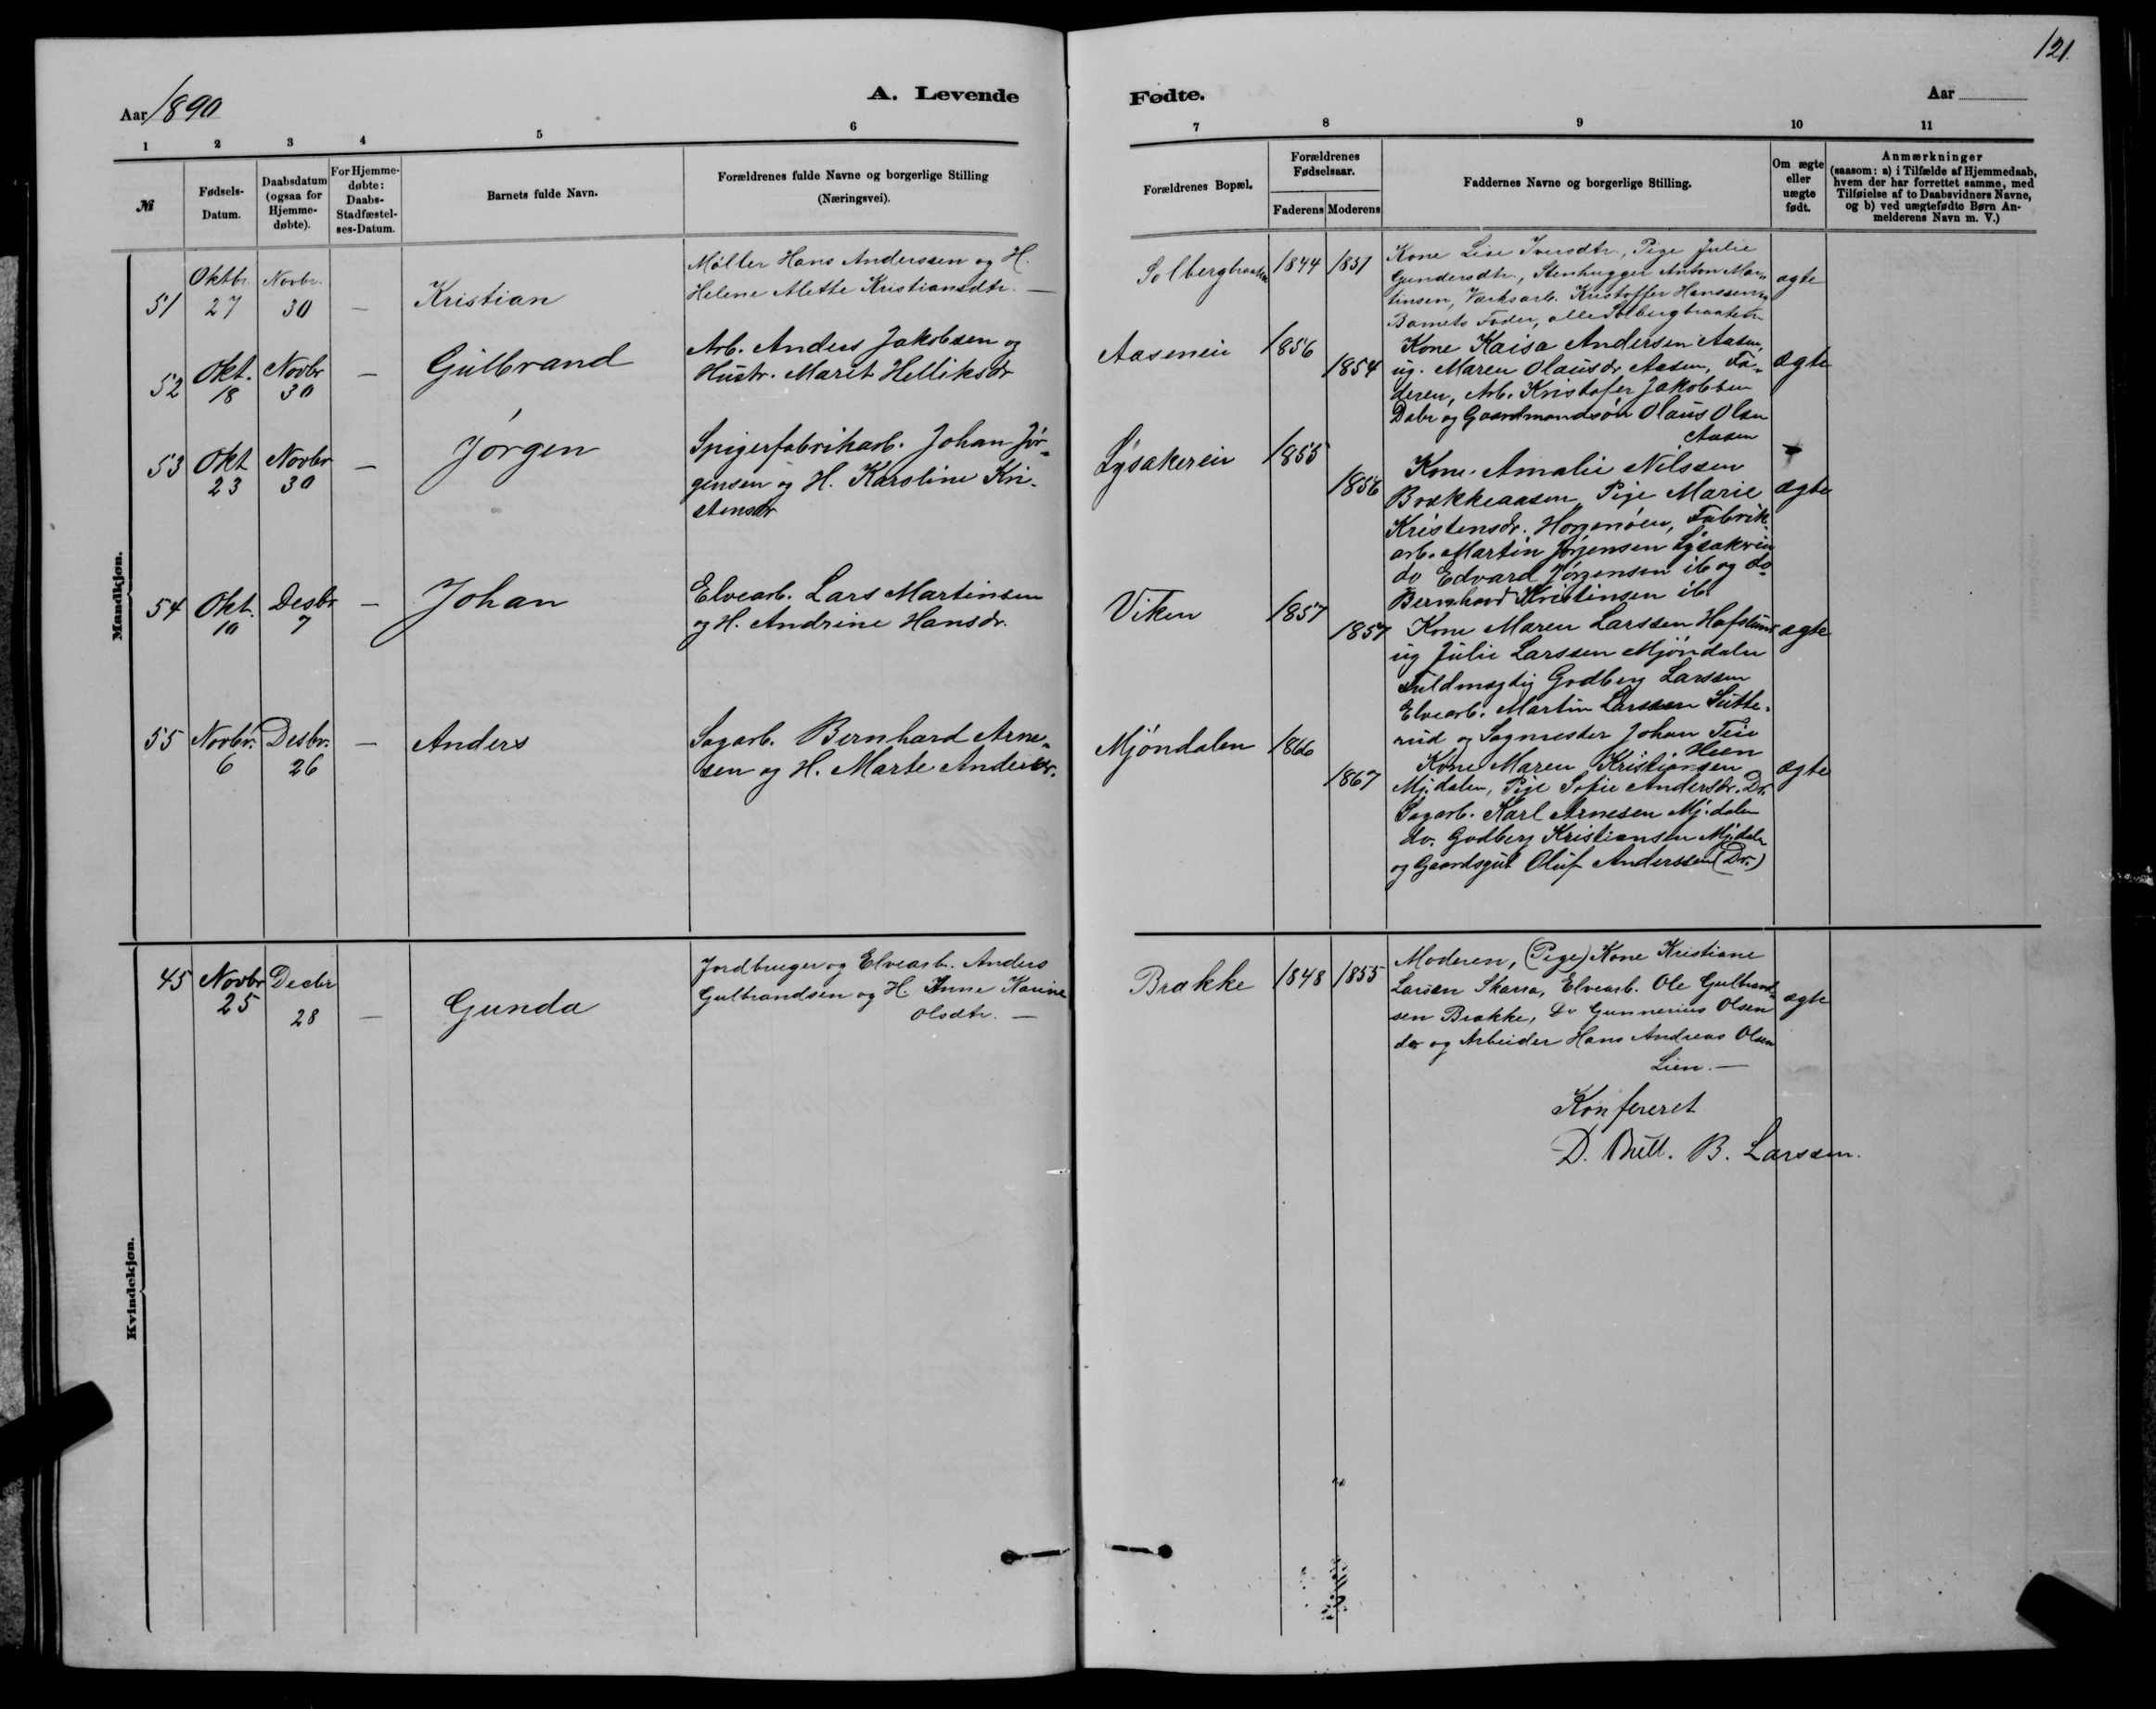 121.
Aar 1890
A. Levende
Fødte.
Aar
1 2 3 4 5 6
7 8 9 10 11
№
Fødsels-
Datum.
Daabsdatum
(ogsaa for
Hjemme-
døbte).
For Hjemme-
døbte:
Daabs-
Stadfæstel-
ses-Datum.
Barnets fulde Navn.
Forældrenes fulde Navne og borgerlige Stilling
(Næringsvei).
Forældrenes Bopæl.
Forældrenes
Fødselsaar.
Faderens Moderens
Faddernes Navne og borgerlige Stilling.
Om ægte
eller
uægte
født.
Anmærkninger
(saasom: a) i Tilfælde af Hjemmedaab,
hvem der har forrettet samme, med
Tilføielse af to Daabsvidners Navne,
og b) ved uægtefødte Børn An-
melderens Navn m. V.)
Mandkjøn.
51 Oktbr. 27 Novbr. 30 — Kristian
Møller Hans Anderssen og H.
Helene Alette Kristiansdtr. —
Solbergbraaten 1844 1851
Kone Lise Iversdtr., Pige Julie
Gundersdtr, Stenhugger Anton Mar-
tinsen, Værksarb. Kristoffer Hanssen og
Barnets Fader, alle Solbergbraaten
ægte
52 Okt. 18 Novbr 30 — Gulbrand
Arb. Anders Jakobsen og
Hustr. Marit Helliksdr
Aaseneie 1856 1854
Kone Kaisa Andersen Aasen,
ug. Maren Olausdr Aasen, Fa-
deren, Arb. Kristofer Jakobsen
Dabr og Gaardmandsøn Olaus Olsen
Aasen
ægte
53 Okt 23 Novbr 30 — Jørgen
Spigerfabrikarb. Johan Jør-
gensen og H. Karoline Kri-
stensdr
Lysakereie 1855 1856
Kone Amalie Nilssen
Brækkeaasen, Pige Marie
Kristensdr. Horgenøen, Fabrik
arb. Martin Jørgensen Lysakereie
do Edvard Jørgensen ib og do
Bernhard Kristinsen ib.
ægte
54 Okt. 10 Desbr 7 — Johan
Elvearb. Lars Martinsen
og H. Andrine Hansdr.
Viken 1857 1857
Kone Maren Larssen Hafslund
ug Julie Larssen Mjøndalen
Fuldmægtig Godberg Larssen
Elvearb. Martin Larssen Sutte-
rud og Sagmester Johan Teie
Heen
ægte
55 Novbr. 6 Desbr. 26 — Anders
Sagarb. Bernhard Arne-
sen og H. Marte Andersdr.
Mjøndalen 1866 1867
Kone Maren Kristiansen
Mj.dalen, Pige Sofie Andersdr. Dr.
Sagarb. Karl Arnesen Mj.dalen
do. Godberg Kristiansen Mj.dalen
og Gaardsgut Oluf Anderssen (Dr.)
ægte
Kvindekjøn.
45 Novbr 25 Decbr 28 — Gunda
Jordbruger og Elvearb. Anders
Gulbrandsen og H. Anne Karine
Olsdtr. —
Brække 1848 1855
Moderen, (Pige) Kone Kristiane
Larsen Skarra, Elvearb. Ole Gulbrand-
sen Brække, Do Gunnerius Olsen
do og Arbeider Hans Andreas Olsen
Lien. —
ægte
Konfereret
D. Bull. B. Larssen.